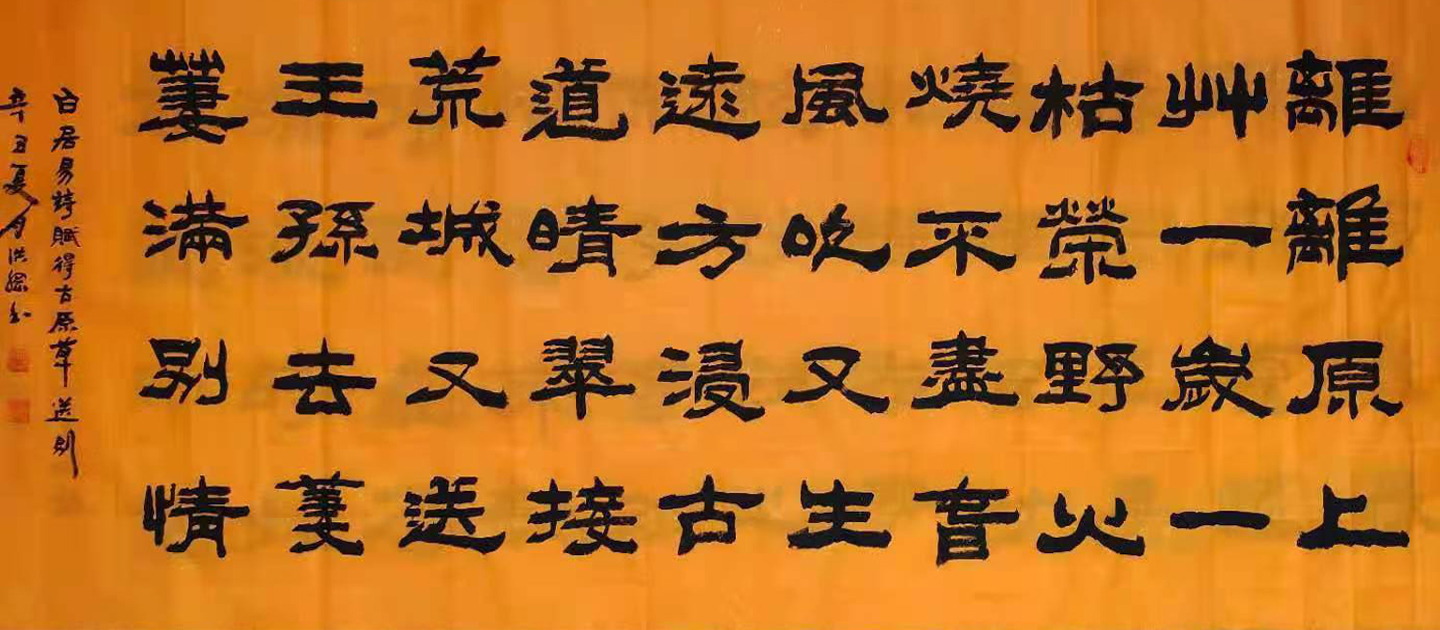 離離原上
艸一歲一
枯榮野火
燒不盡春
風吹又生
遠方浸古
道晴翠接
荒城又送
王孫去萋
萋滿別情
白居易詩賦得古原草送別
辛丑夏月洪書